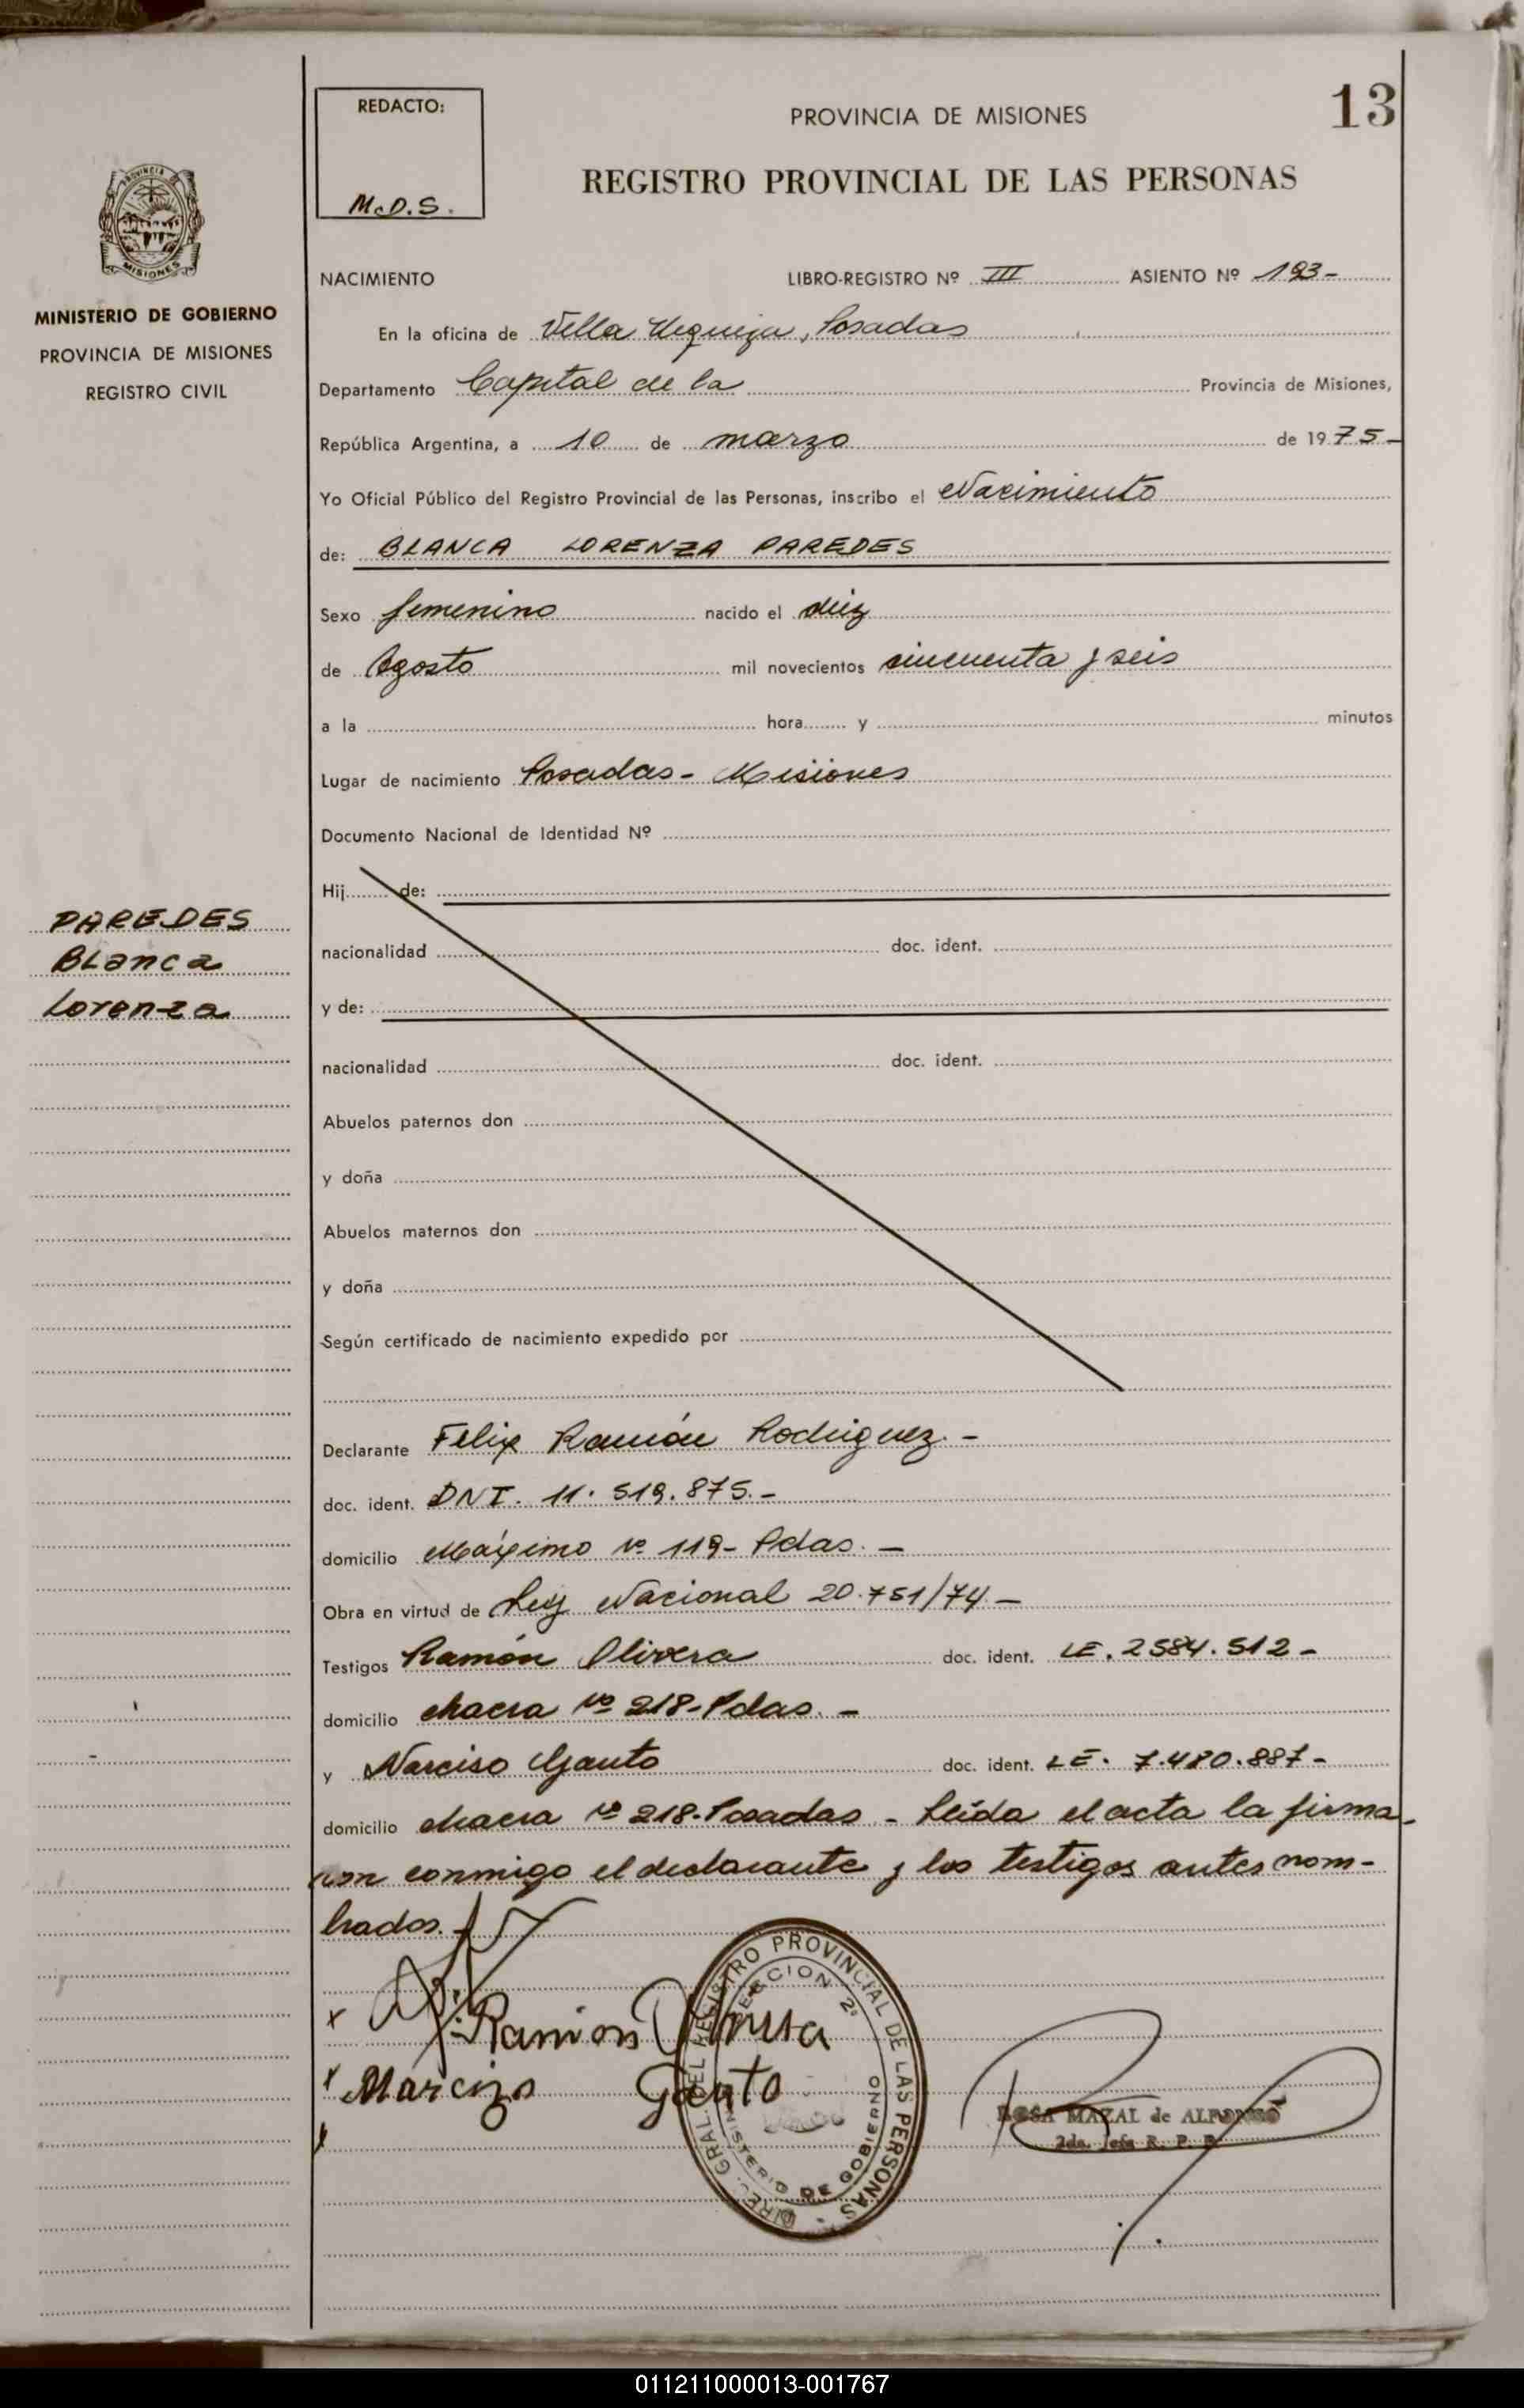 13
REDACTO:
M.D.S.
PROVINCIA DE MISIONES
REGISTRO PROVINCIAL DE LAS PERSONAS
PROVINCIA DE
MISIONES
MINISTERIO DE GOBIERNO
PROVINCIA DE MISIONES
REGISTRO CIVIL
NACIMIENTO LIBRO-REGISTRO Nº III ASIENTO Nº 193-
En la oficina de Villa Urquiza, Posadas
Departamento Capital de la Provincia de Misiones,
República Argentina, a 10 de marzo de 1975-
Yo Oficial Público del Registro Provincial de las Personas, inscribo el Nacimiento
de: BLANCA LORENZA PAREDES
Sexo femenino nacido el diez
de Agosto mil novecientos cincuenta y seis
a la hora y minutos
Lugar de nacimiento Posadas - Misiones
Documento Nacional de Identidad Nº
Hij de:
nacionalidad doc. ident.
y de:
nacionalidad doc. ident.
Abuelos paternos don
y doña
Abuelos maternos don
y doña
Según certificado de nacimiento expedido por
PAREDES
Blanca
Lorenza
Declarante Felix Ramón Rodriguez.-
doc. ident. DNI. 11.519.875.-
domicilio Máximo nº 119- Pdas.-
Obra en virtud de Ley Nacional 20.751/74-
Testigos Ramón Olivera doc. ident. LE. 2584.512-
domicilio chacra nº 218-Pdas.-
y Narciso Gauto doc. ident. LE. 7.480.887-
domicilio chacra nº 218-Posadas - Leída el acta la firma-
ron conmigo el declarante y los testigos antes nom-
brados.-
x
Ramon
x Marcizo Gauto
x
DIREC. GRAL. DEL REGISTRO PROVINCIAL DE LAS PERSONAS
SECCION 2ª
MINISTERIO DE GOBIERNO
ROSA MAZAL de ALFONSO
2da. Jefa R. P. P.
011211000013-001767